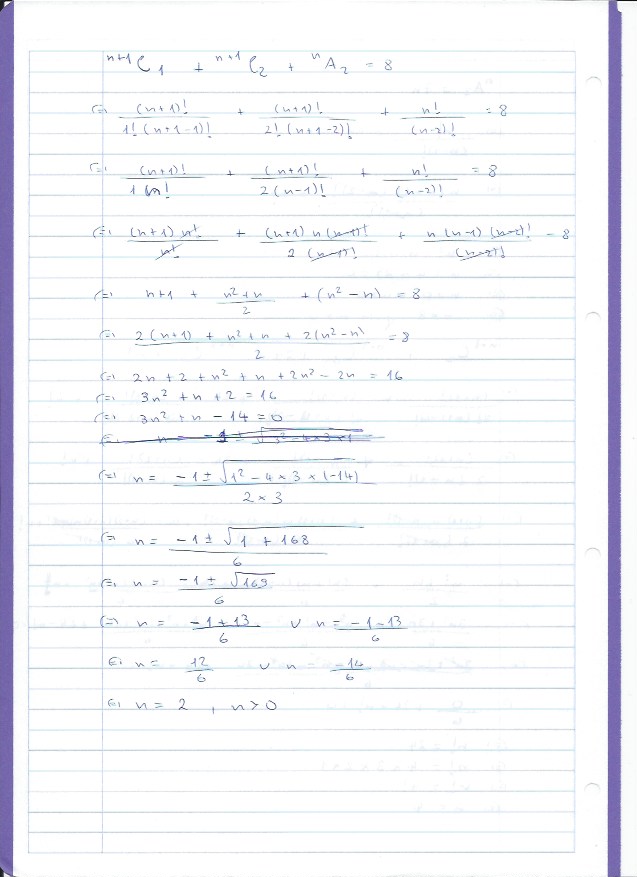 ⁿ⁺¹C₁ + ⁿ⁺¹C₂ + ⁿA₂ = 8
(=) (n+1)! / 1!(n+1-1)! + (n+1)! / 2!(n+1-2)! + n! / (n-2)! = 8
(=) (n+1)! / 1 n! + (n+1)! / 2(n-1)! + n! / (n-2)! = 8
(=) (n+1) n! / n! + (n+1) n (n-1)! / 2 (n-1)! + n(n-1)(n-2)! / (n-2)! = 8
(=) n+1 + n²+n / 2 + (n²-n) = 8
(=) 2(n+1) + n²+n + 2(n²-n) / 2 = 8
(=) 2n + 2 + n² + n + 2n² - 2n = 16
(=) 3n² + n + 2 = 16
(=) 3n² + n - 14 = 0
(=) n = -1 ± √(1² - 4×3×(-14)) / 2×3
(=) n = -1 ± √(1 + 168) / 6
(=) n = -1 ± √169 / 6
(=) n = -1+13 / 6 ∪ n = -1-13 / 6
(=) n = 12 / 6 ∪ n = -14 / 6
(=) n = 2 , n>0